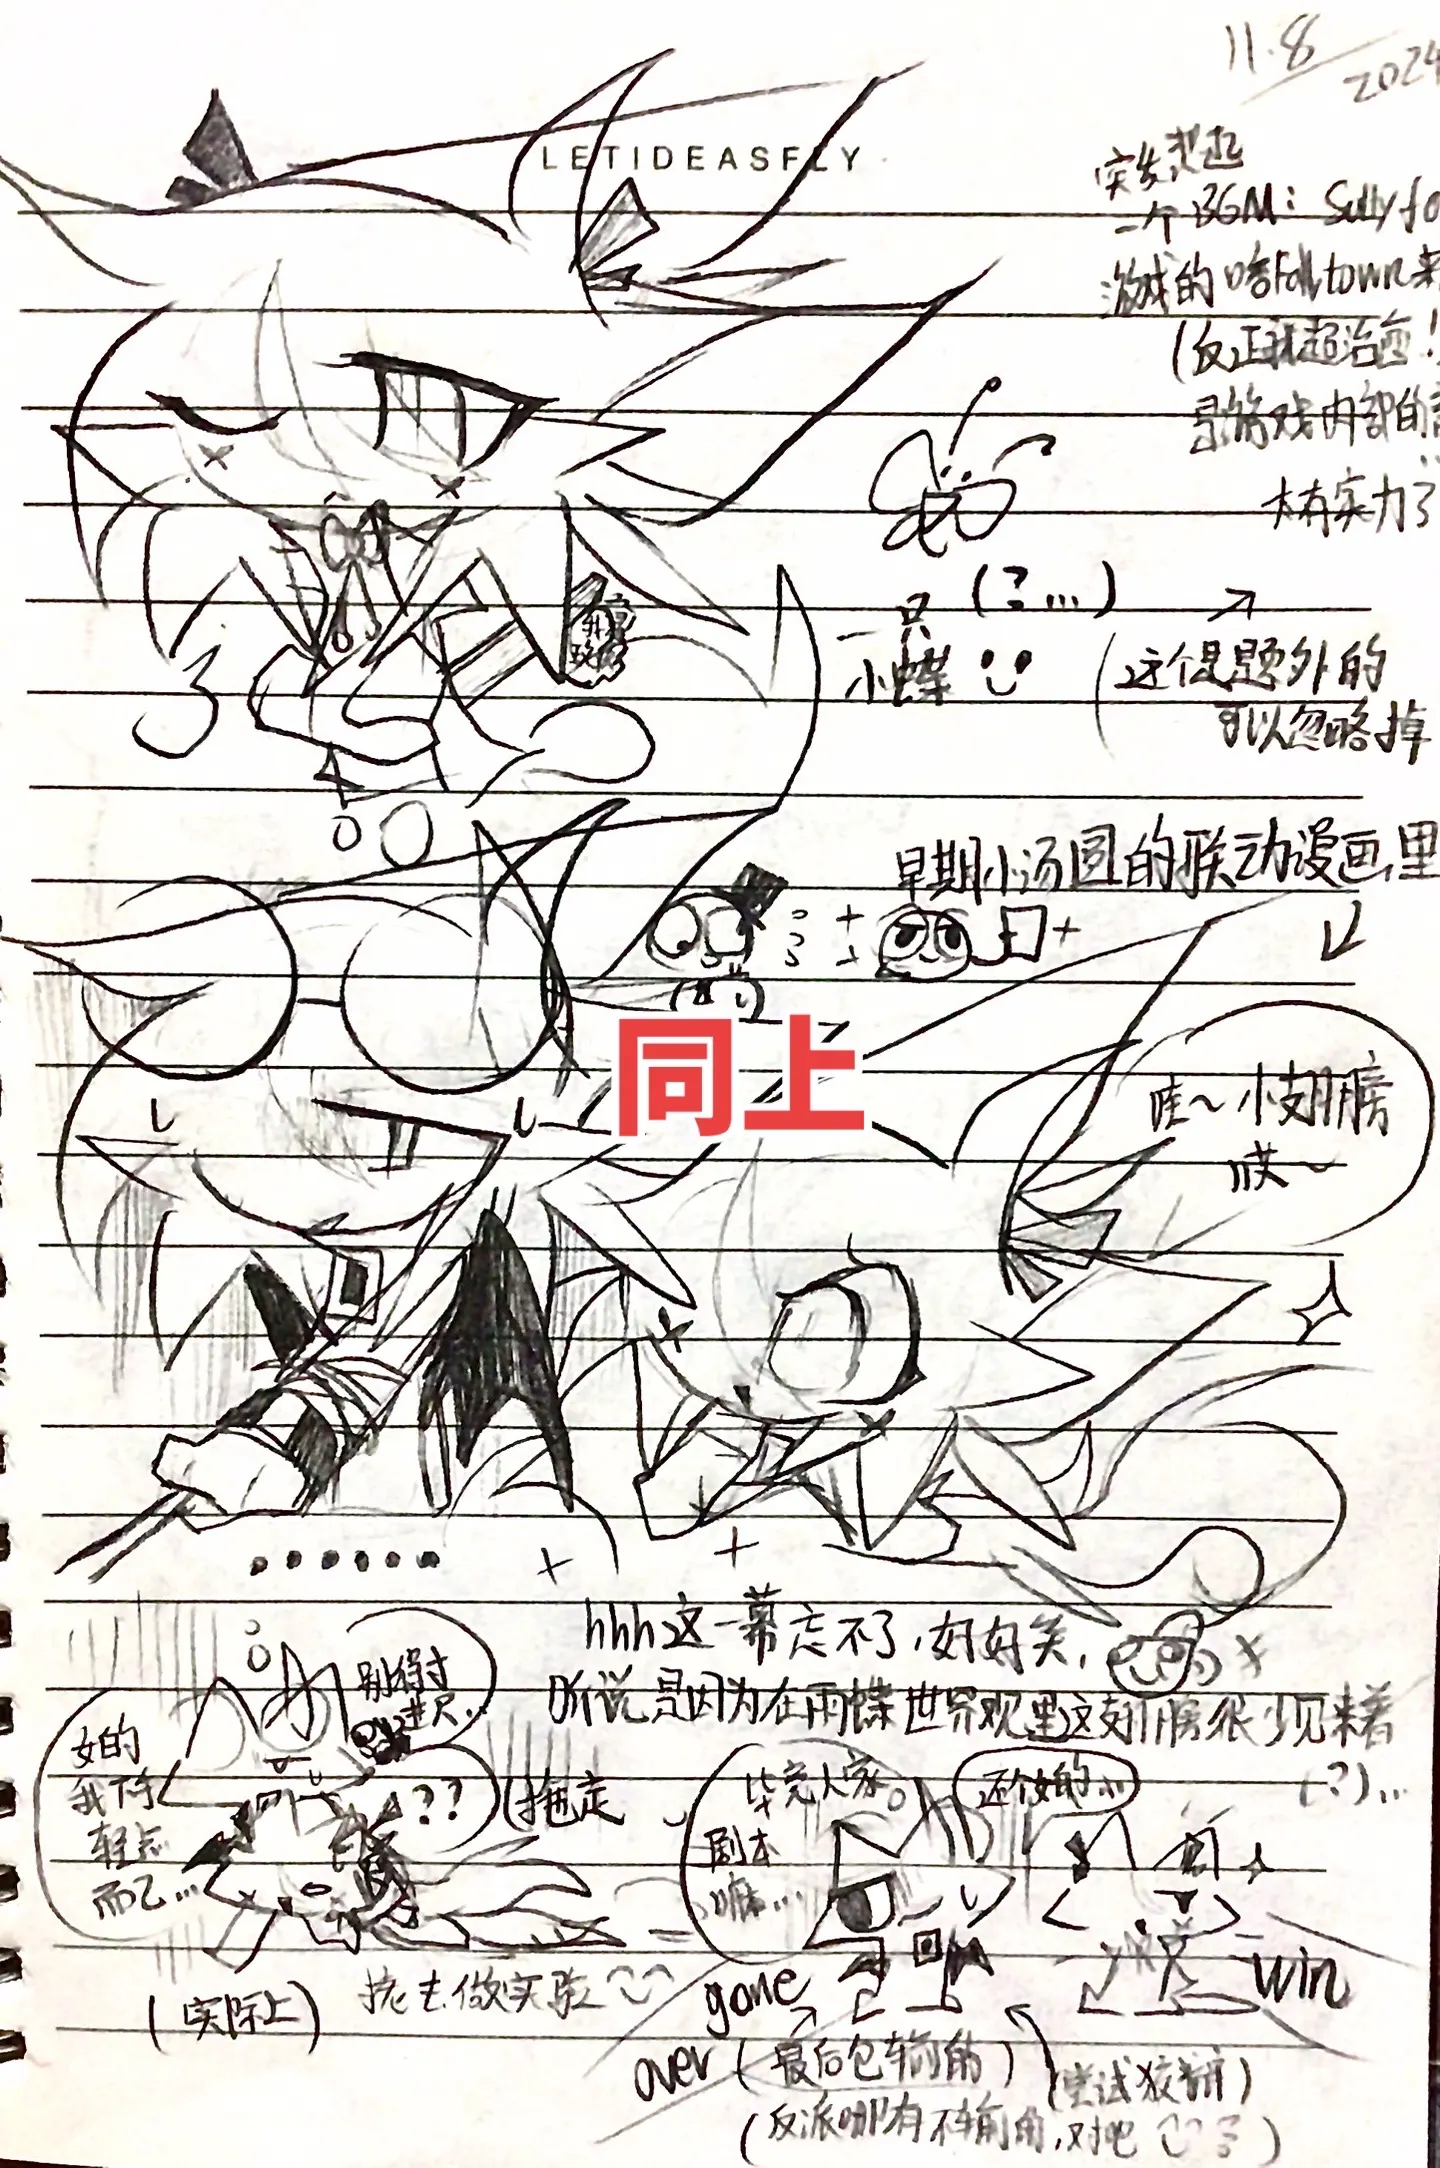 11.8
2024
LETIDEASFLY
突发想起
一个BGM：Sully fo
游戏的啥Falltown来
(反正我超治愈！
是游戏内部的
太有实力了
(?...)
一只
小蝶
(这个是题外的
可以忽略掉
早期小汤圆的联动漫画里
同上
哇～小翅膀
哎～
hhh这一幕忘不了，好好笑，
听说是因为在雨蝶世界观里这翅膀很少见来着
(?)...
别得寸
进尺..
女的
我下手
轻点
而已...
??
(拖走
毕竟人家
剧本
嘛...
还个女的...
(实际上)
拖去做实验
game
over
win
(最后包输的)
(尝试狡辩)
(反派哪有不输的，对吧